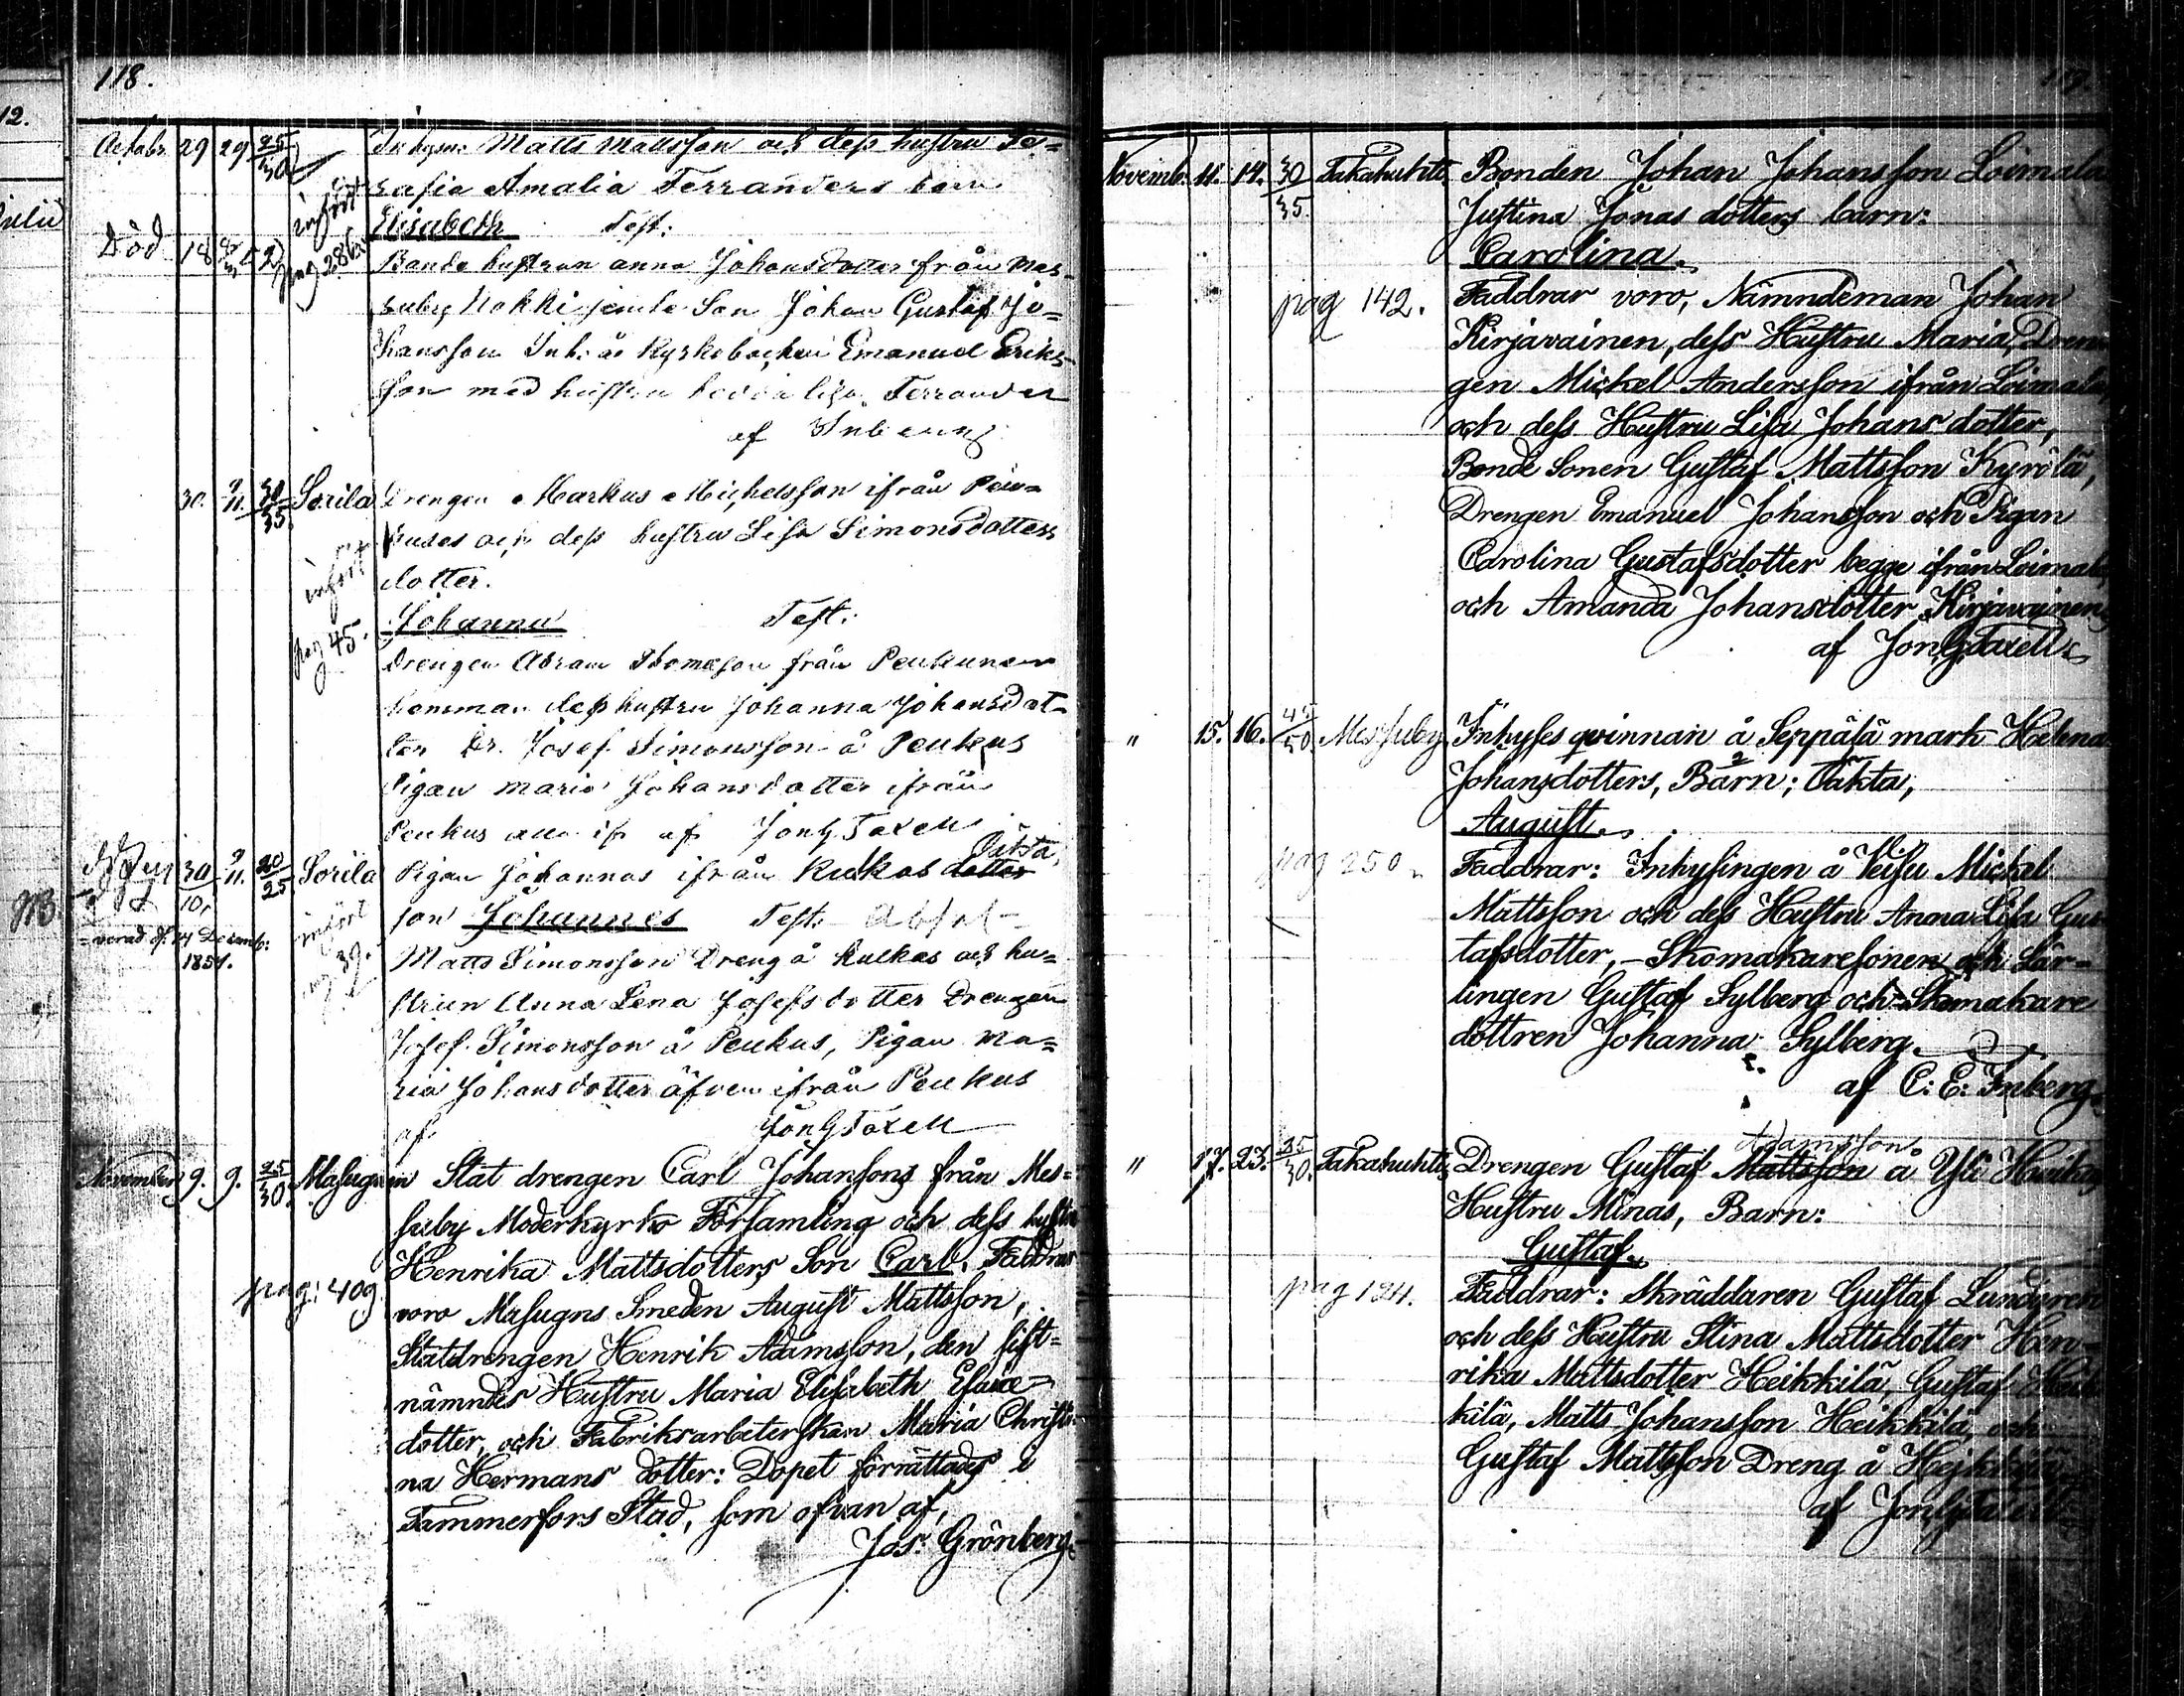 118.
12.
Octobr 29 29 25/30 Inhyses Matts Mattsson och dess hustru Se=
rafia Amalia Terranders barn
infört Elisabeth Test:
Död 18 pag 286 Bonde hustrun Anna Johansdotter från Mes-
suby Nokki jemte Son Johan Gustaf Jo=
hansson Inh: å Kyrkobacken Emanuel Eriks-
son med hustru Lisa Terrander
af Inberg
30. 9/11. 30/35 Sorila Drengen Markus Michelsson ifrån Peu=
kus och dess hustru Lisa Simonsdotters
infört dotter.
pag 45. Johanna Test:
Drengen Abram Thomasson från Peukunen
hemman dess hustru Johanna Johansdot-
ter Dr. Josef Simonsson å Peukus
Pigan Maria Johansdotter ifrån
Peukus af Jon G Taxell
NB 30/10. 9/11. 20/25 Sorila Pigan Johannas ifrån Kulkas dotter Oäkta
infört son Johannes Test:
d. 14 Decemb: 1854. 39. Matts Simonsson Dreng å Kulkas och hu=
strun Anna Lena Josefsdotter Drengen
Josef Simonsson å Peukus, Pigan Ma=
ria Johansdotter äfven ifrån Peukus
af Jon G Taxell
November 9. 9. 25/30. Masugnen Stat drengen Carl Johanssons från Mes=
suby Moderkyrko Församling och dess hustru
Henrika Mattsdotters Son Carl. Faddrar
pag: 409 voro Masugns Smeden August Mattsson,
Statdrengen Henrik Adamsson, den sist=
nämndes Hustru Maria Elisabeth Esaie=
dotter, och Fabriksarbeterskan Maria Christi=
na Hermans dotter: Dopet förrättades i
Tammerfors Stad, som ofvan af,
Jos: Grönberg.
119.
Novemb. 11. 14. 30/35. Takahuhti Bonden Johan Johansson Loimala
Justina Jonas dotters barn:
Carolina.
pag 142. Faddrar voro, Nämndeman Johan
Kirjavainen, dess Hustru Maria, Dren
gen Mickel Andersson ifrån Loimala,
och dess Hustru Lisa Johans dotter,
Bonde Sonen Gustaf Mattsson Kyrölä,
Drengen Emanuel Johansson och Pigan
Carolina Gustafsdotter begge ifrån Loimala,
och Amanda Johansdotter Kirjavainen
af Jon G Taxell
" 15. 16. 45/50 Messuby Inhyses qvinnan å Seppälä mark Helena
Johansdotters, Barn; Oäkta,
August.
pag 250. Faddrar: Inhysingen å Veisu Mickel
Mattsson och dess Hustru Anna Lisa Gus
tafsdotter, – Skomakaresonen och Lär-
lingen Gustaf Sylberg och Skomakare
dottren Johanna Sylberg.
af C: E: Inberg.
" 17. 23. 25/30. Takahuhti, Drengen Gustaf Mattsson Adamsson å Yli Heikk
Hustru Minas, Barn:
Gustaf.
pag 124. Faddrar: Skräddaren Gustaf Lundgren
och dess Hustru Stina Mattsdotter Hen-
rika Mattsdotter Heikkilä, Gustaf Heik
kilä, Matts Johansson Heikkilä, och
Gustaf Mattsson Dreng å Heikkilä
af Jon G Taxell